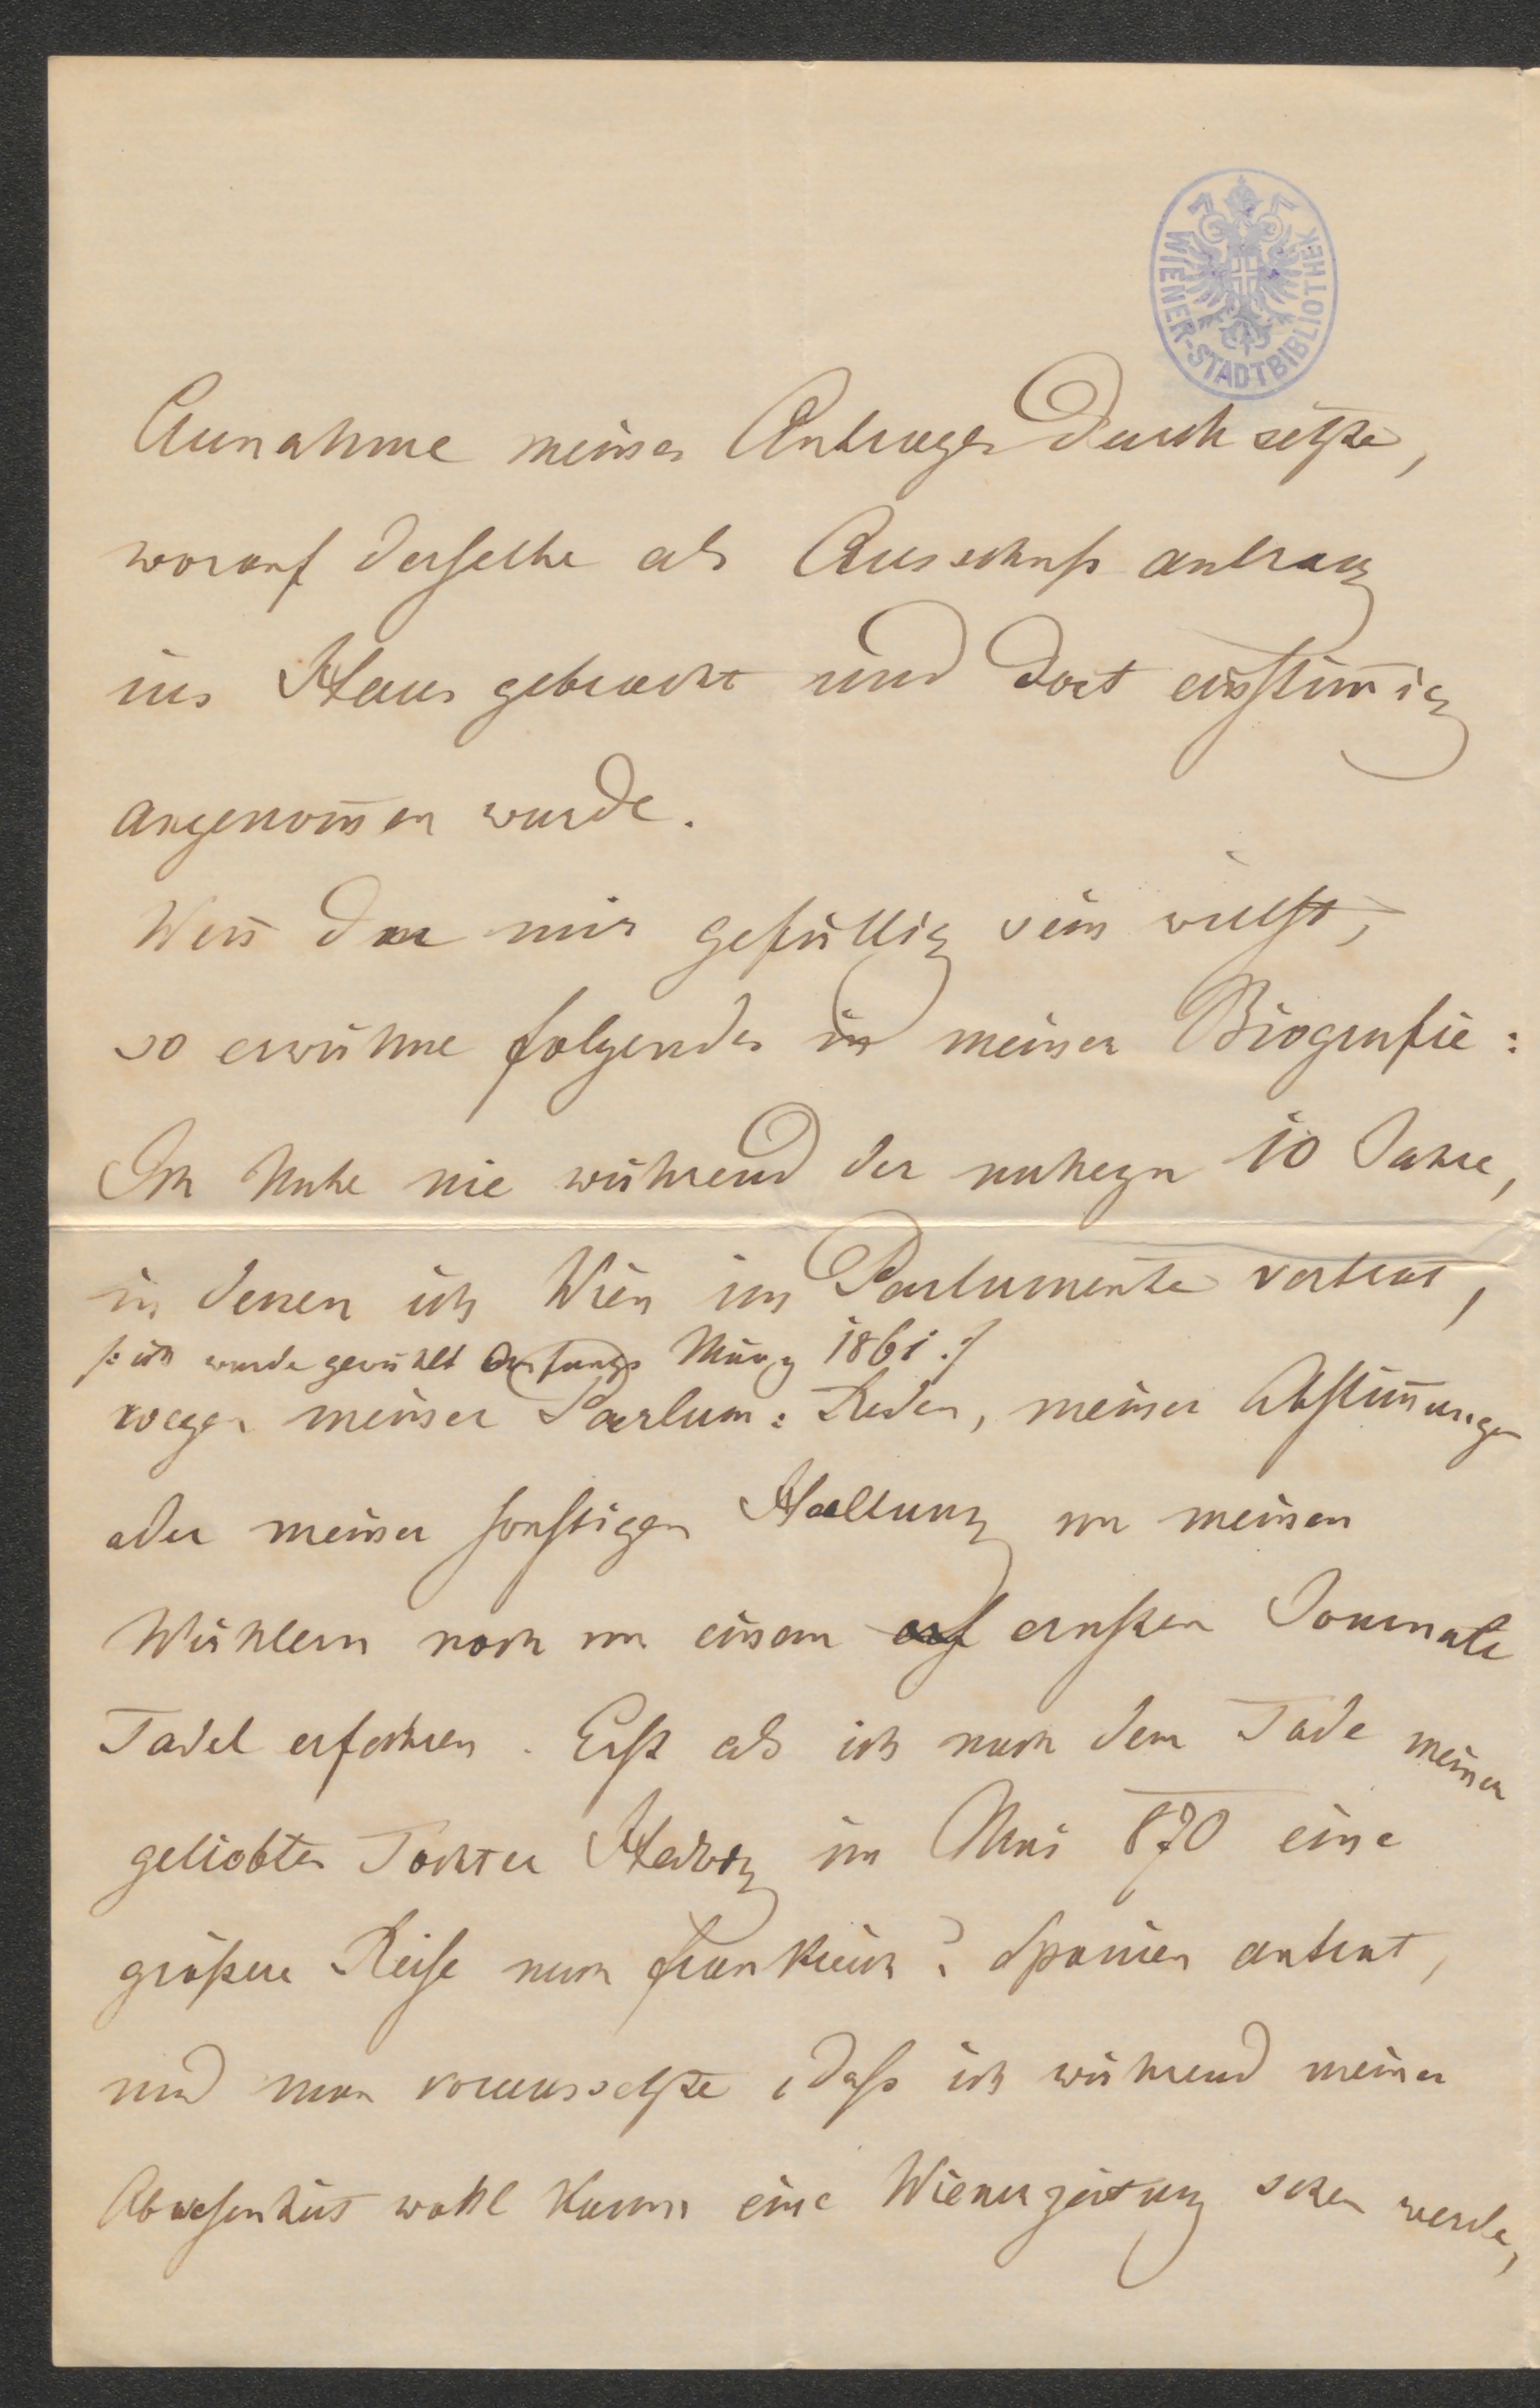 WIENER-STADTBIBLIOTHEK
Annahme meines Antrages durchsetzte,
worauf derselbe als Ausschuß antrag
ins Haus gebracht und dort einstim̅ig
angenom̅en wurde.
Wen̅ du mir gefällig sein willst,
so erwähne folgendes in meiner Biografie:
Ich habe nie während der nahezu 10 Jahre,
in denen ich Wien im Parlamente vertrat,
/: ich wurde gewählt Anfangs März 1861 :/
wegen meiner Parlam: Reden, meiner Abstim̅ungen
oder meiner sonstigen Haltung von meinen
Wählern noch von einem ernsten Journale
Tadel erfahren. Erst als ich nach dem Tode meiner
geliebten Tochter Hedwig im Mai 870 eine
größere Reise nach Frankreich & Spanien antrat,
und man voraussetzte, daß ich während meiner
Abwesenheit wohl kaum eine Wienerzeitung sehen werde,